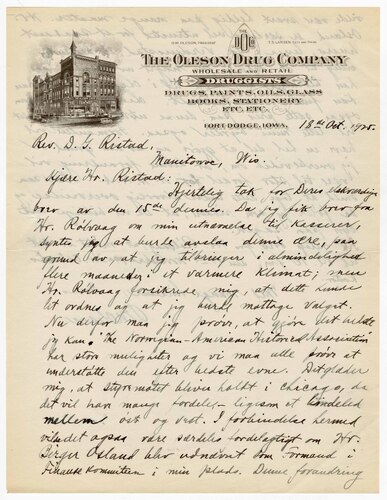 O.M. OLESON, PRESIDENT
THE
ODCo
T.S. LARSEN, SEC'Y AND TREAS.
THE OLESON DRUG COMPANY
WHOLESALE AND RETAIL
DRUGGISTS
DRUGS, PAINTS, OILS, GLASS
BOOKS, STATIONERY
ETC. ETC.
FORT DODGE, IOWA,
18de Oct. 1925.
Rev. D. G. Ristad,
Manitowoc, Wis.
Kjære Hr. Ristad:
Hjertelig tak for Deres elskværdige
brev av den 15de dennes. Da jeg fik brev fra
Hr. Rölvaag om min utnævnelse til kasserer,
syntes jeg at burde avslaa denne ære, paa
grund av at jeg tilbringer i almindelighed
flere maaneder i et varmere klimat; men
Hr. Rölvaag forsikrede mig, at dette kunde
let ordnes og at jeg burde mottage valget.
Nu derfor maa jeg prøve, at gjöre det bedste
jeg kan. The Norwegian-American Historical Association
har store muligheter og vi maa alle pröve at
understötte den efter bedste evne. Det glæder
mig, at styremötet bliver holdt i Chicago, da
det vil have mange fordele - ligesom et Bindeled
mellem öst og vest. I forbindelse hermed
vilde det ogsaa være særdeles fordelagtigt om Hr.
Birger Osland blev utnævnt som formand i
Finanse Kommitteen i min plads. Denne forandring